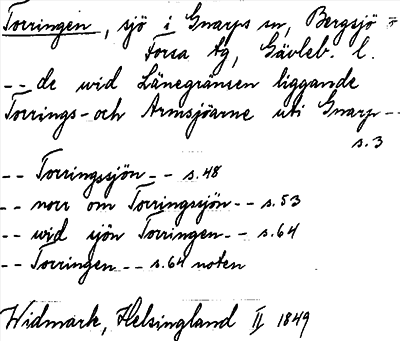 Torringen, sjö i Gnarps sn, Bergsjö =
Forsa tg, Gävleb. l.
-- de wid Länegränsen liggande
Torrings- och Armsjöarne uti Gnarp --
s.3
-- Torringssjön -- s.48
-- norr om Torringssjön -- s.53
-- wid sjön Torringen -- s.64
-- Torringen -- s.64 noten
Widmark, Helsingland II 1849